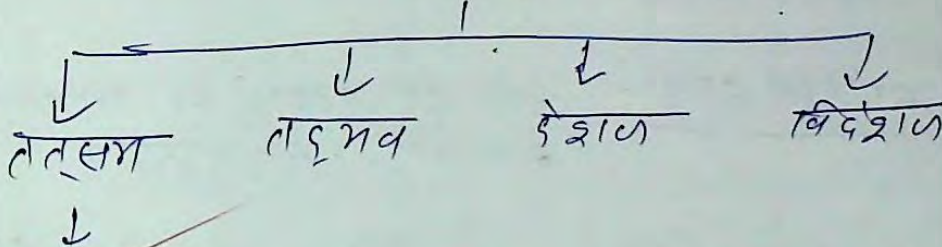 तत्सम तद्भव देशज विदेशज